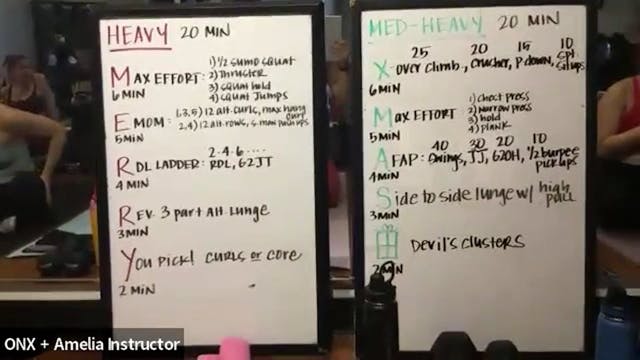 HEAVY 20 MIN
1) 1/2 SUMO SQUAT
MAX EFFORT: 2) THRUSTER
6 MIN 3) SQUAT HOLD
4) SQUAT JUMPS
EMOM: 1,3,5) 12 alt. curls, max hang
2,4) 12 alt. rows, s. max push ups
5 MIN
2-4-6 ....
RDL LADDER: RDL, G2JT
4 MIN
REV. 3 PART Alt. Lunge
3 MIN
YOU PICK! CURLS OR CORE
2 MIN
MED-HEAVY 20 MIN
25 20 15 10
X-OVER CLIMB., CRUCHER, P.DOWN, SPL. SITUPS
6 MIN
1) CHEST PRESS
MAX EFFORT 2) NARROW PRESS
5 MIN 3) HOLD
4) PLANK
40 30 20 10
AFAP: SWINGS, JJ, G2OH, 1/2 BURPEE PICK UPS
4 MIN
SIDE TO SIDE LUNGE W/ HIGH PULL
3 MIN
DEVIL'S CLUSTERS
2 MIN
ONX + Amelia Instructor